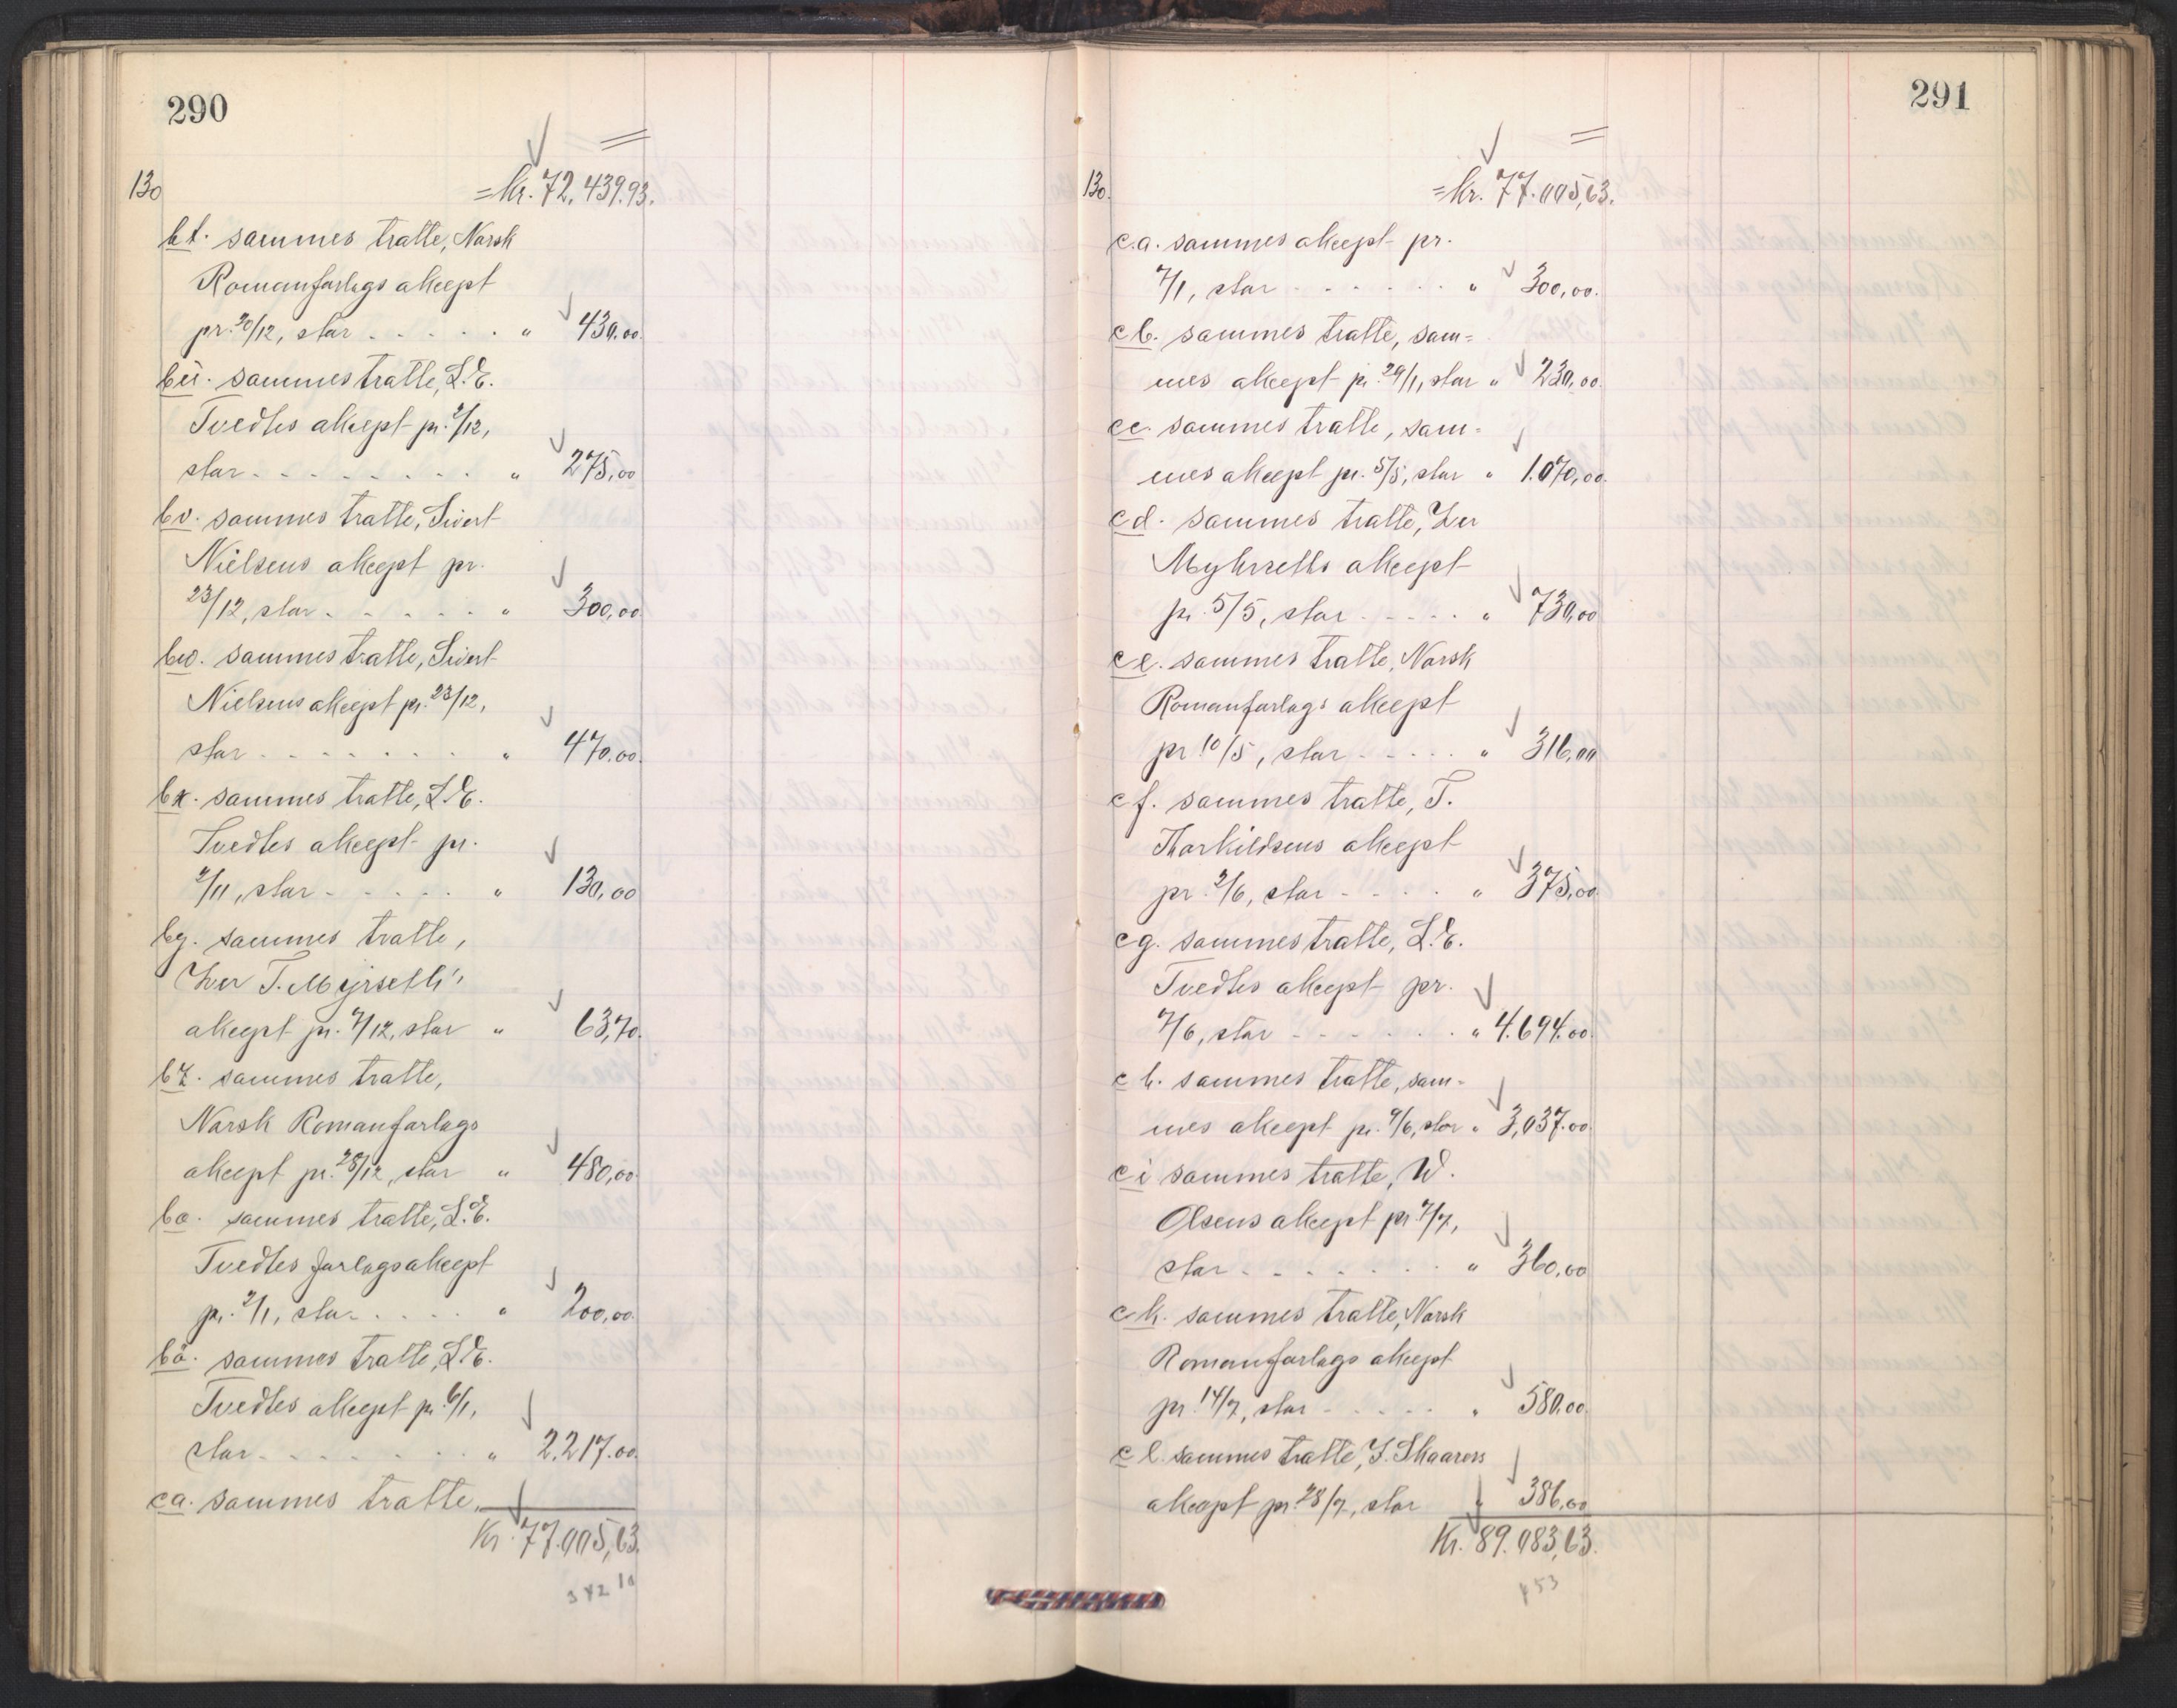 290
130 = Kr. 72.439.93.
bt. sammes tratte, Norsk
Romanforlags akcept
pr. 20/12, stor - - - - - " 430.00
bu. sammes tratte, L. E.
Tvedtes akcept pr. 2/12,
stor - - - - - - - - - " 275,00
bv. sammes tratte, Sivert
Nielsens akcept pr.
23/12, stor - - - - - - " 300,00
bw. sammes tratte, Sivert
Nielsens akcept pr. 23/12,
stor - - - - - - - - " 470.00.
bx. sammes tratte, L. E.
Tvedtes akcept pr.
2/11, stor - - - - - " 130,00
by. sammes tratte,
Iver T. Myrseth's
akcept pr. 7/12, stor " 63,70.
bz. sammes tratte,
Norsk Romanforlags
akcept pr. 28/12, stor " 480,00
bø. sammes tratte, L. E.
Tvedtes forlags akcept
pr. 2/1, stor - - - - " 200,00.
bå. sammes tratte, L. E.
Tvedtes akcept pr. 6/1,
stor - - - - - - - - " 2.217.00.
ca. sammes tratte,
Kr. 77.005,63.
342 10
291
130. = Kr. 77.005,63.
c.a. sammes akcept pr.
7/1, stor - - - - - - " 300,00.
cb. sammes tratte, sam=
mes akcept pr. 29/1, stor " 230,00.
cc. sammes tratte, sam=
mes akcept pr. 5/5, stor " 1.070,00.
cd. sammes tratte, Iver
Myhrseths akcept
pr. 5/5, stor - - - - - " 730,00
ce. sammes tratte, Norsk
Romanforlags akcept
pr. 10/5, stor - - - - - " 316,00
cf. sammes tratte, T.
Thorkildsens akcept
pr. 2/6, stor - - - - " 375,00
cg. sammes tratte, L. E.
Tvedtes akcept pr.
7/6, stor - - - - - - " 4.694.00.
ch. sammes tratte, sam=
mes akcept pr. 9/6, stor " 3,037.00
ci sammes tratte, W.
Olsens akcept pr. 7/7,
stor - - - - - - - - " 360,00
ck. sammes tratte, Norsk
Romanforlags akcept
pr. 14/7, stor - - - - - " 580.00
cl. sammes tratte, J. Skaarers
akcept pr. 28/7, stor " 386,00
Kr. 89.083,63.
453